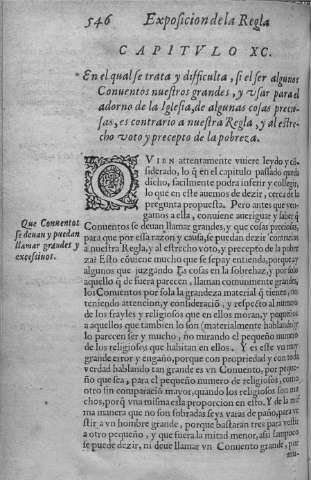 546 Exposicion de la Regla
CAPITVLO XC.
En el qual se trata y difficulta, si el ser algunos
Conuentos nuestros grandes, y vsar para el
adorno de la Iglesia, de algunas cosas precio-
sas, es contrario a nuestra Regla, y al estre-
cho voto y precepto de la pobreza.
QVIEN attentamente viuere leydo y cõ-
siderado, lo q̃ en el capitulo passado queda
dicho, facilmente podra inferir y collegir,
lo que en este auemos de dezir, cerca de la
pregunta propuesta. Pero antes que ven-
gamos a ella, conuiene aueriguar y saber q̃
Que Conuentos
se deuan y puedan
llamar grandes y
excessiuos.
Conuentos se deuan llamar grandes, y que cosas preciosas,
para que por essa razon y causa, se puedan dezir contrarias
a nuestra Regla, y al estrecho voto, y precepto de la pobre-
za: Esto cõuiene mucho que se sepa y entienda, porque ay
algunos que juzgando las cosas en la sobrehaz, y por solo
aquello q̃ de fuera parecen, llaman comunmente grandes,
los Conuentos por sola la grandeza material q̃ tienen, no
teniendo attencion, y consideraciõ, y respecto al numero
de los frayles y religiosos que en ellos moran, y pequeños
a aquellos que tambien lo son (materialmente hablando)
lo parecen ser y mucho, no mirando el pequeño numero
de los religiosos que habitan en ellos. Y es este vn muy
grande error y engaño, porque con propriedad y con toda
verdad hablando tan grande es vn Conuento, por peque-
ño que sea, para el pequeño numero de religiosos, como
otro sin comparaciõ mayor, quando los religiosos son mu-
chos, porq̃ vna misma es la proporcion en esto. Y de la mis
ma manera que no son sobradas seys varas de paño, para ve-
stir a vn hombre grande, porque bastaran tres para vestir
a otro pequeño, y que fuera la mitad menor, assi tampoco
se puede dezir, ni deue llamar vn Conuento grande, por
mu-